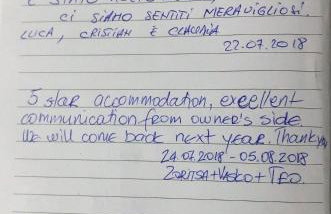 CI SIAMO SENTITI MERAVIGLIOSI.
LUCA, CRISTIAN E CLAUDIA
22.07.2018
5 star accommodation, excellent
communication from owner's side
We will come back next year. Thank you
24.07.2018 - 05.08.2018
ZORITSA + VASKO + TEO.